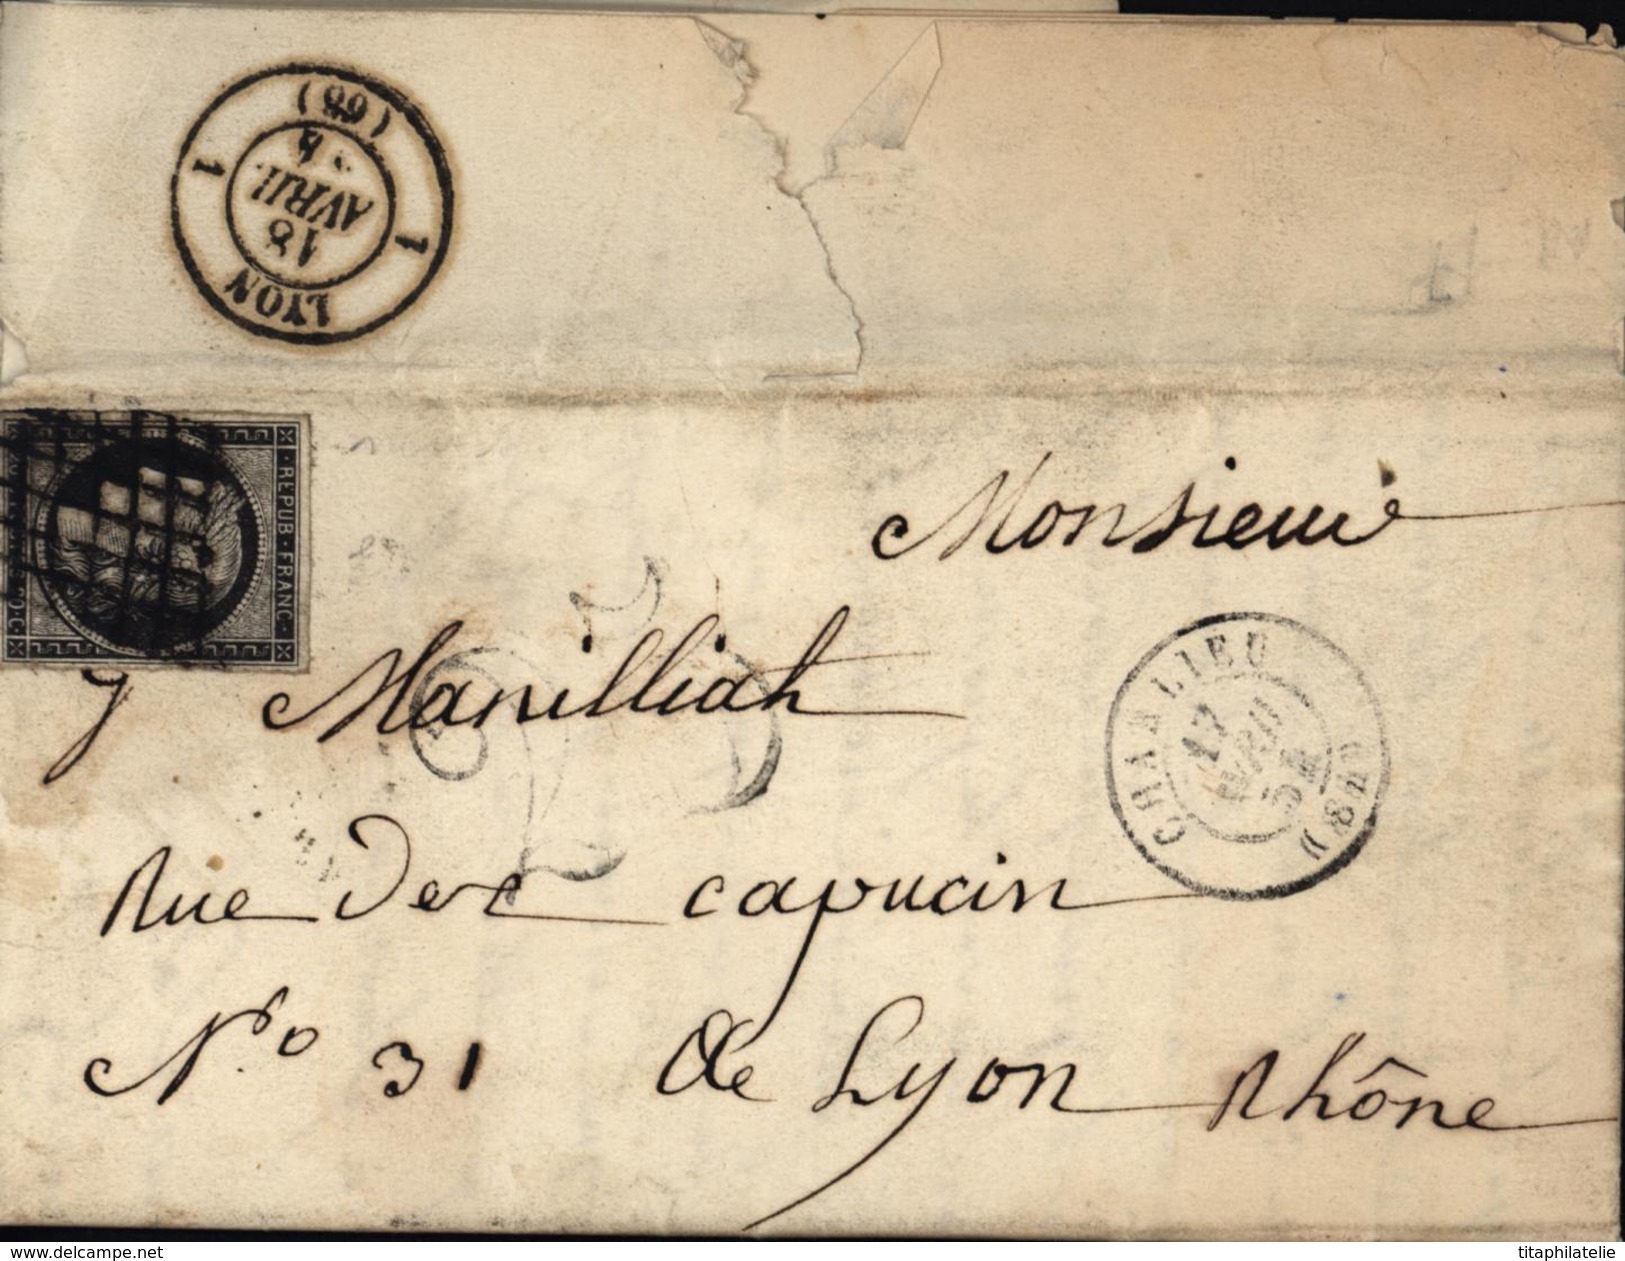 LYON
18
AVRIL
(68)
1
1
REPUB · FRANC ·
20 · C ·
Monsieur
Manilliat
25
CHARLIEU
17
AVRIL
54
Rue des capucin
No 31 de Lyon Rhône
www.delcampe.net
titaphilatelie